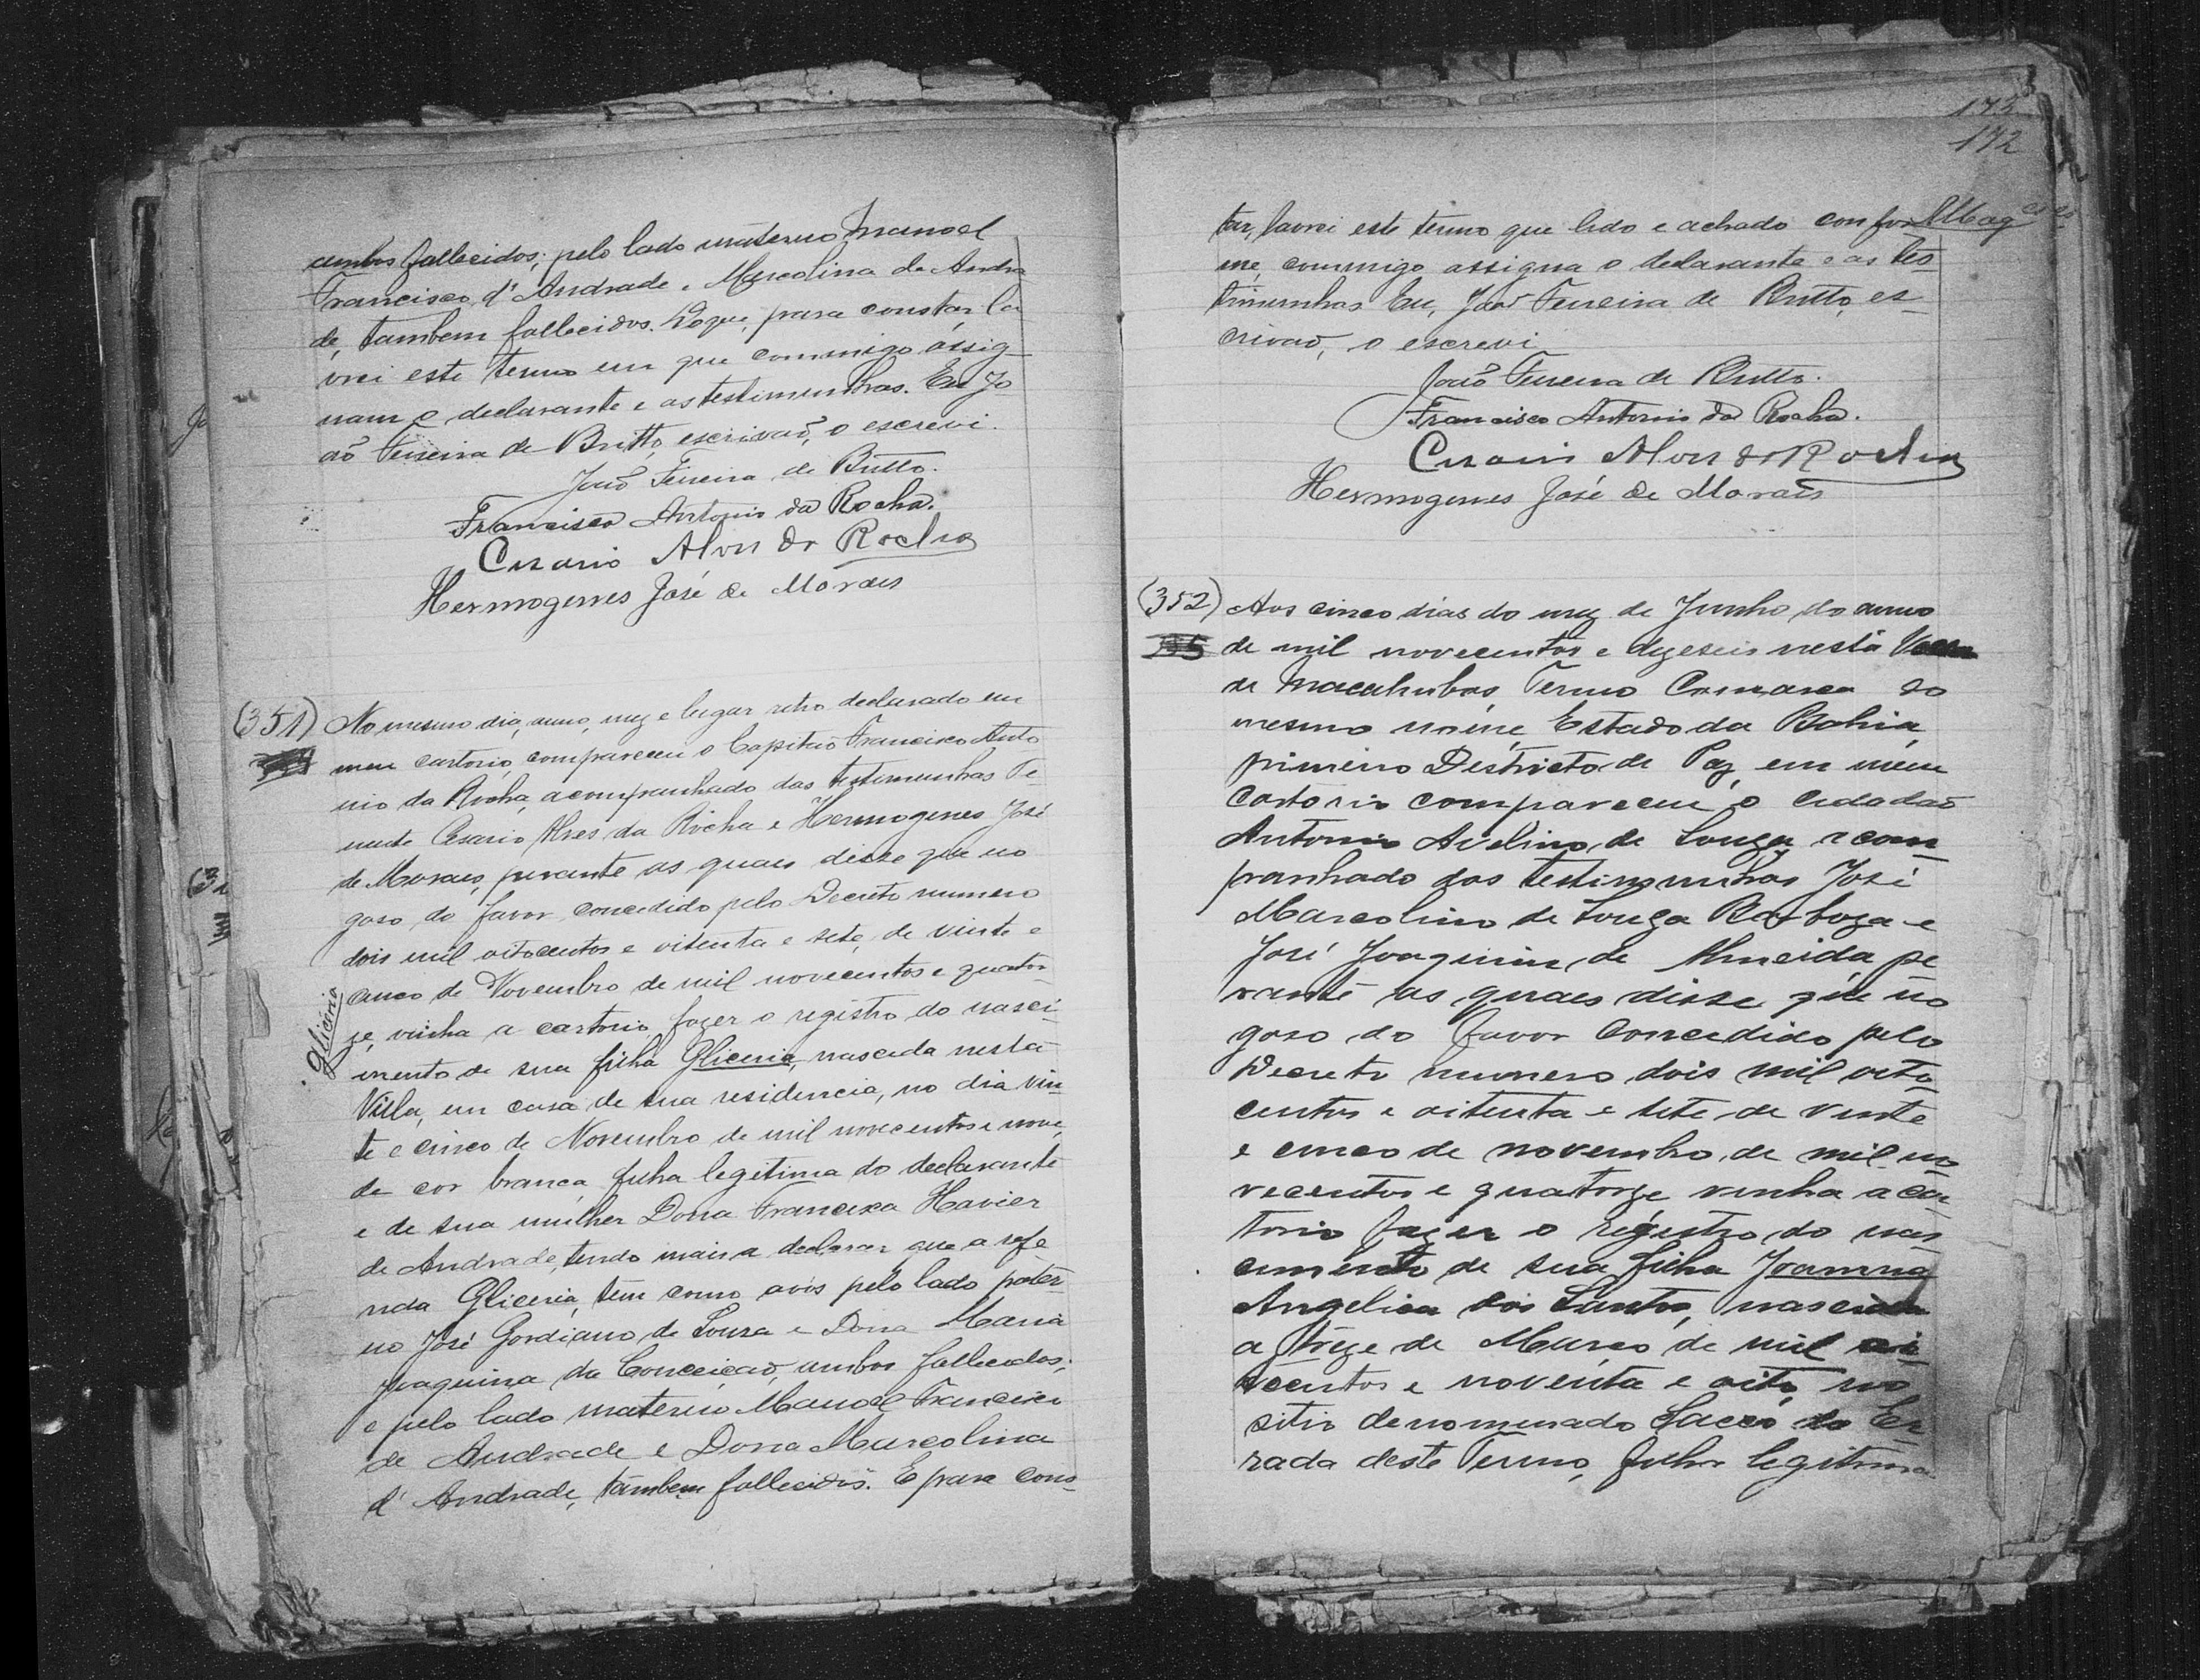 ambos fallecidos; pelo lado materno Manoel
Francisco d'Andrade e Marcolina de Andra
de, tambem fallecidos. Do que, para constar, la
vrei este termo em que commigo assig
nam o declarante e as testimunhas. Eu Jo
ão Ferreira de Britto, escrivaõ, o escrevi.
João Ferreira de Britto.
Francisco Antonio da Rocha.
Cesario Alves da Rocha
Hermogenes José de Moraes
(351) No mesmo dia, anno, mez e lugar retro declarado em
meu cartorio, compareceu o Capitão Francisco Anto
nio da Rocha, acompanhado das testimunhas Te
nente Cesario Alves da Rocha e Hermogenes José
de Moraes, perante as quaes disse que no
goso do favor concedido pelo Decreto numero
dois mil oitocentos e oitenta e sete, de vinte e
cinco de Novembro de mil novecentos e quator
ze, vinha a cartorio fazer o registro do nasci
mento de sua filha Gliceria, nascida nesta
Villa, em casa de sua residencia, no dia vin
te e cinco de Novembro de mil novecentos e nove,
de cor branca, filha legitima do declarante
e de sua mulher Dona Francisca Xavier
de Andrade, tendo mais a declarar que a refe
rida Gliceria, tem como avós pelo lado pater
no José Gordiano de Souza e Dona Maria
Joaquina da Conceição, ambos fallecidos;
e pelo lado materno Manoel Francisco
de Andrade e Dona Marcolina
d'Andrade, tambem fallecidos. E para cons
Gliceria
173
172
tar, lavrei este termo que lido e achado confor
me, commigo assigna o declarante e as tes
timunhas. Eu, João Ferreira de Britto, es
crivaõ, o escrevi
João Ferreira de Britto.
Francisco Antonio da Rocha.
Cesario Alves da Rocha
Hermogenes José de Moraes
(352) Aos cinco dias do mez de Junho do anno
de mil novecentos e dezeseis nesta
de Macahubas, Termo Comarca do
mesmo nome, Estado da Bahia,
primeiro Destricto de Paz, em meu
Cartorio compareceu o cidadão
Antonio Avelino de Souza acom
panhado das testimunhas José
Marcolino de Souza Barboza e
José Joaquim de Almeida pe
rante as quaes disse que no
goso do favor Concedido pelo
Decreto numero dois mil oito
centos e oitenta e sete de vinte
e cinco de novembro de mil no
vecentos e quatorze vinha a car
torio fazer o registro do nas
cimento de sua filha Joanna
Angelica dos Santos, nascida
a treze de Março de mil oi
tocentos e noventa e oito, no
sitio denominado Sacco do
deste Termo, filha legitima